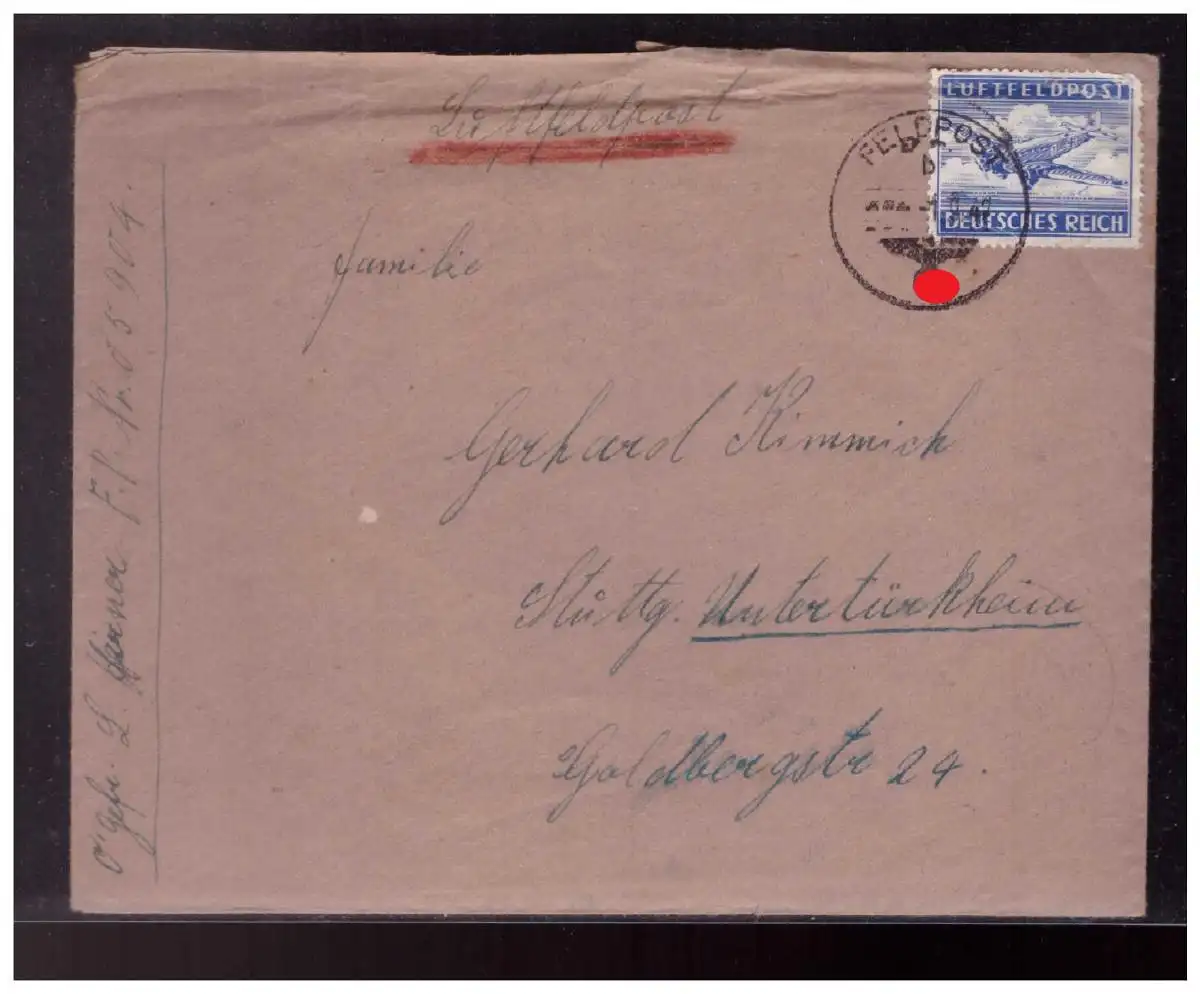 Luftfeldpost
LUFTFELDPOST
DEUTSCHES REICH
FELDPOST
b
Familie
Gerhard Kimmich
Stuttg. Untertürkheim
Goldbergstr 24.
O'gefr. L F.P. Nr. 05904